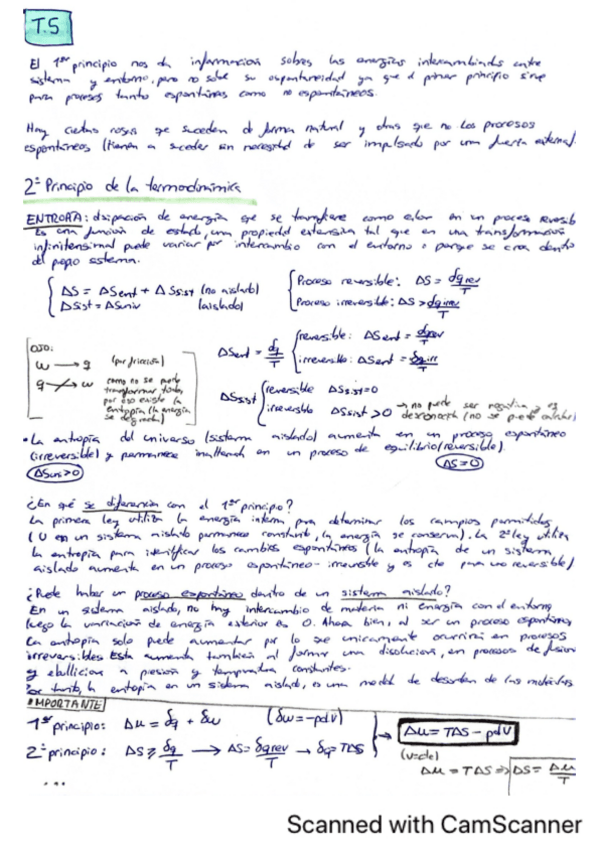 T.5
El 1er principio nos da información sobre las energías intercambiadas entre
sistema y entorno, pero no sobre su espontaneidad ya que el primer principio sirve
para procesos tanto espontáneos como no espontáneos.
Hay ciertas cosas que suceden de forma natural y otras que no. Los procesos
espontáneos (tienen a suceder sin necesidad de ser impulsado por una fuerza externa).
2º Principio de la termodinámica
ENTROPÍA: disipación de energía que se transfiere como calor en un proceso reversib
Es una función de estado, una propiedad extensiva tal que en una transformación
infinitesimal puede variar por intercambio con el entorno o porque se crea dentro
del propio sistema.
ΔS = ΔSent + ΔSsist (no aislado)
ΔSsist = ΔSuniv (aislado)
Proceso reversible: ΔS = dqrev/T
Proceso irreversible: ΔS > dqirrev/T
OJO:
w → q (por fricción)
q ↛ w como no se puede
transformar todo,
por eso existe la
entropía (la energía
se degrada)
ΔSent = dq/T
reversible: ΔSent = dqrev/T
irreversible: ΔSent = δqirr/T
ΔSsist
reversible ΔSsist=0
irreversible ΔSsist >0 → no puede ser negativa y es
desconocida (no se puede calcular)
• La entropía del universo (sistema aislado) aumenta en un proceso espontáneo
(irreversible) y permanece inalterada en un proceso de equilibrio (reversible).
ΔSuni>0
ΔS=0
¿En qué se diferencian con el 1er principio?
La primera ley utiliza la energía interna para determinar los cambios permitidos
(U en un sistema aislado permanece constante, la energía se conserva). La 2º ley utiliza
la entropía para identificar los cambios espontáneos (la entropía de un sistema
aislado aumenta en un proceso espontáneo - irreversible y es cte para uno reversible)
¿Puede haber un proceso espontáneo dentro de un sistema aislado?
En un sistema aislado, no hay intercambio de materia ni energía con el entorno
luego la variación de energía exterior es 0. Ahora bien, al ser un proceso espontáneo,
la entropía solo puede aumentar por lo que únicamente ocurrirá en procesos
irreversibles. Esta aumenta también al formar una disolución, en procesos de fusión
y ebullición a presión y temperatura constantes.
Por tanto, la entropía en un sistema aislado, es una medida del desorden de las moléculas
IMPORTANTE
1er principio: Δu = δq + δw (δw=-pdV)
→ Δu = TΔS - pdV
2º principio: ΔS ≥ δq/T → ΔS = δqrev/T → δq = TΔS
(v=cte)
Δu = TΔS ⇒ ΔS = Δu/T
...
Scanned with CamScanner